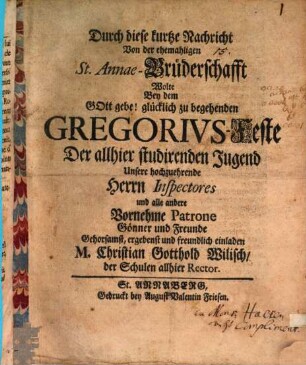 Durch diese kurtze Nachricht
Von der ehemahligen
15.
St. Annae-Brüderschafft
Wolte
Bey dem
GOtt gebe! glücklich zu begehenden
GREGORIVS-Feste
Der allhier studirenden Jugend
Unsere hochzuehrende
Herrn Inspectores
und alle andere
Vornehme Patrone
Gönner und Freunde
Gehorsamst, ergebenst und freundlich einladen
M. Christian Gotthold Wilisch/
der Schulen allhier Rector.
St. ANNABERG,
Gedruckt bey August Valentin Friesen.